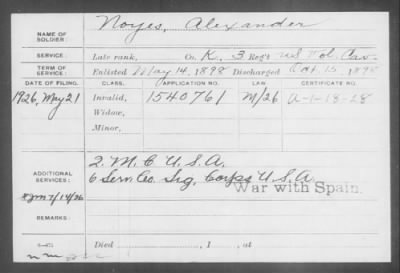 NAME OF SOLDIER: Noyes, Alexander
SERVICE: Late rank, Co. K, 3 Reg't U S Vol. Cav.
TERM OF SERVICE: Enlisted May 14, 1898 Discharged Oct. 15, 1898
DATE OF FILING. CLASS. APPLICATION NO. LAW CERTIFICATE NO.
1926, May 21 Invalid, 1540761 M/26 A-1-18-28
Widow,
Minor,
ADDITIONAL SERVICES: 2. M. C U. S. A.
6 Serv. Co. Sig. Corps U. S. A.
War with Spain.
REMARKS:
Died , 1 , at